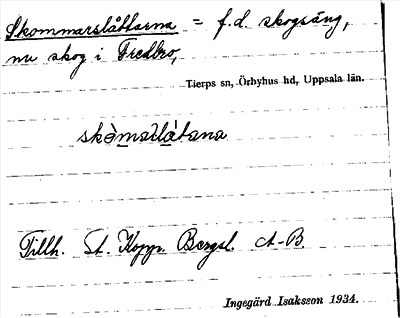 Skommarslåttarna = f.d. skogsäng,
nu skog i Fredbro,
Tierps sn, Örbyhus hd, Uppsala län.
skòmaṣlàtana
Tillh. St. Kopp. Bergsl. A-B.
Ingegärd Isaksson 1934.